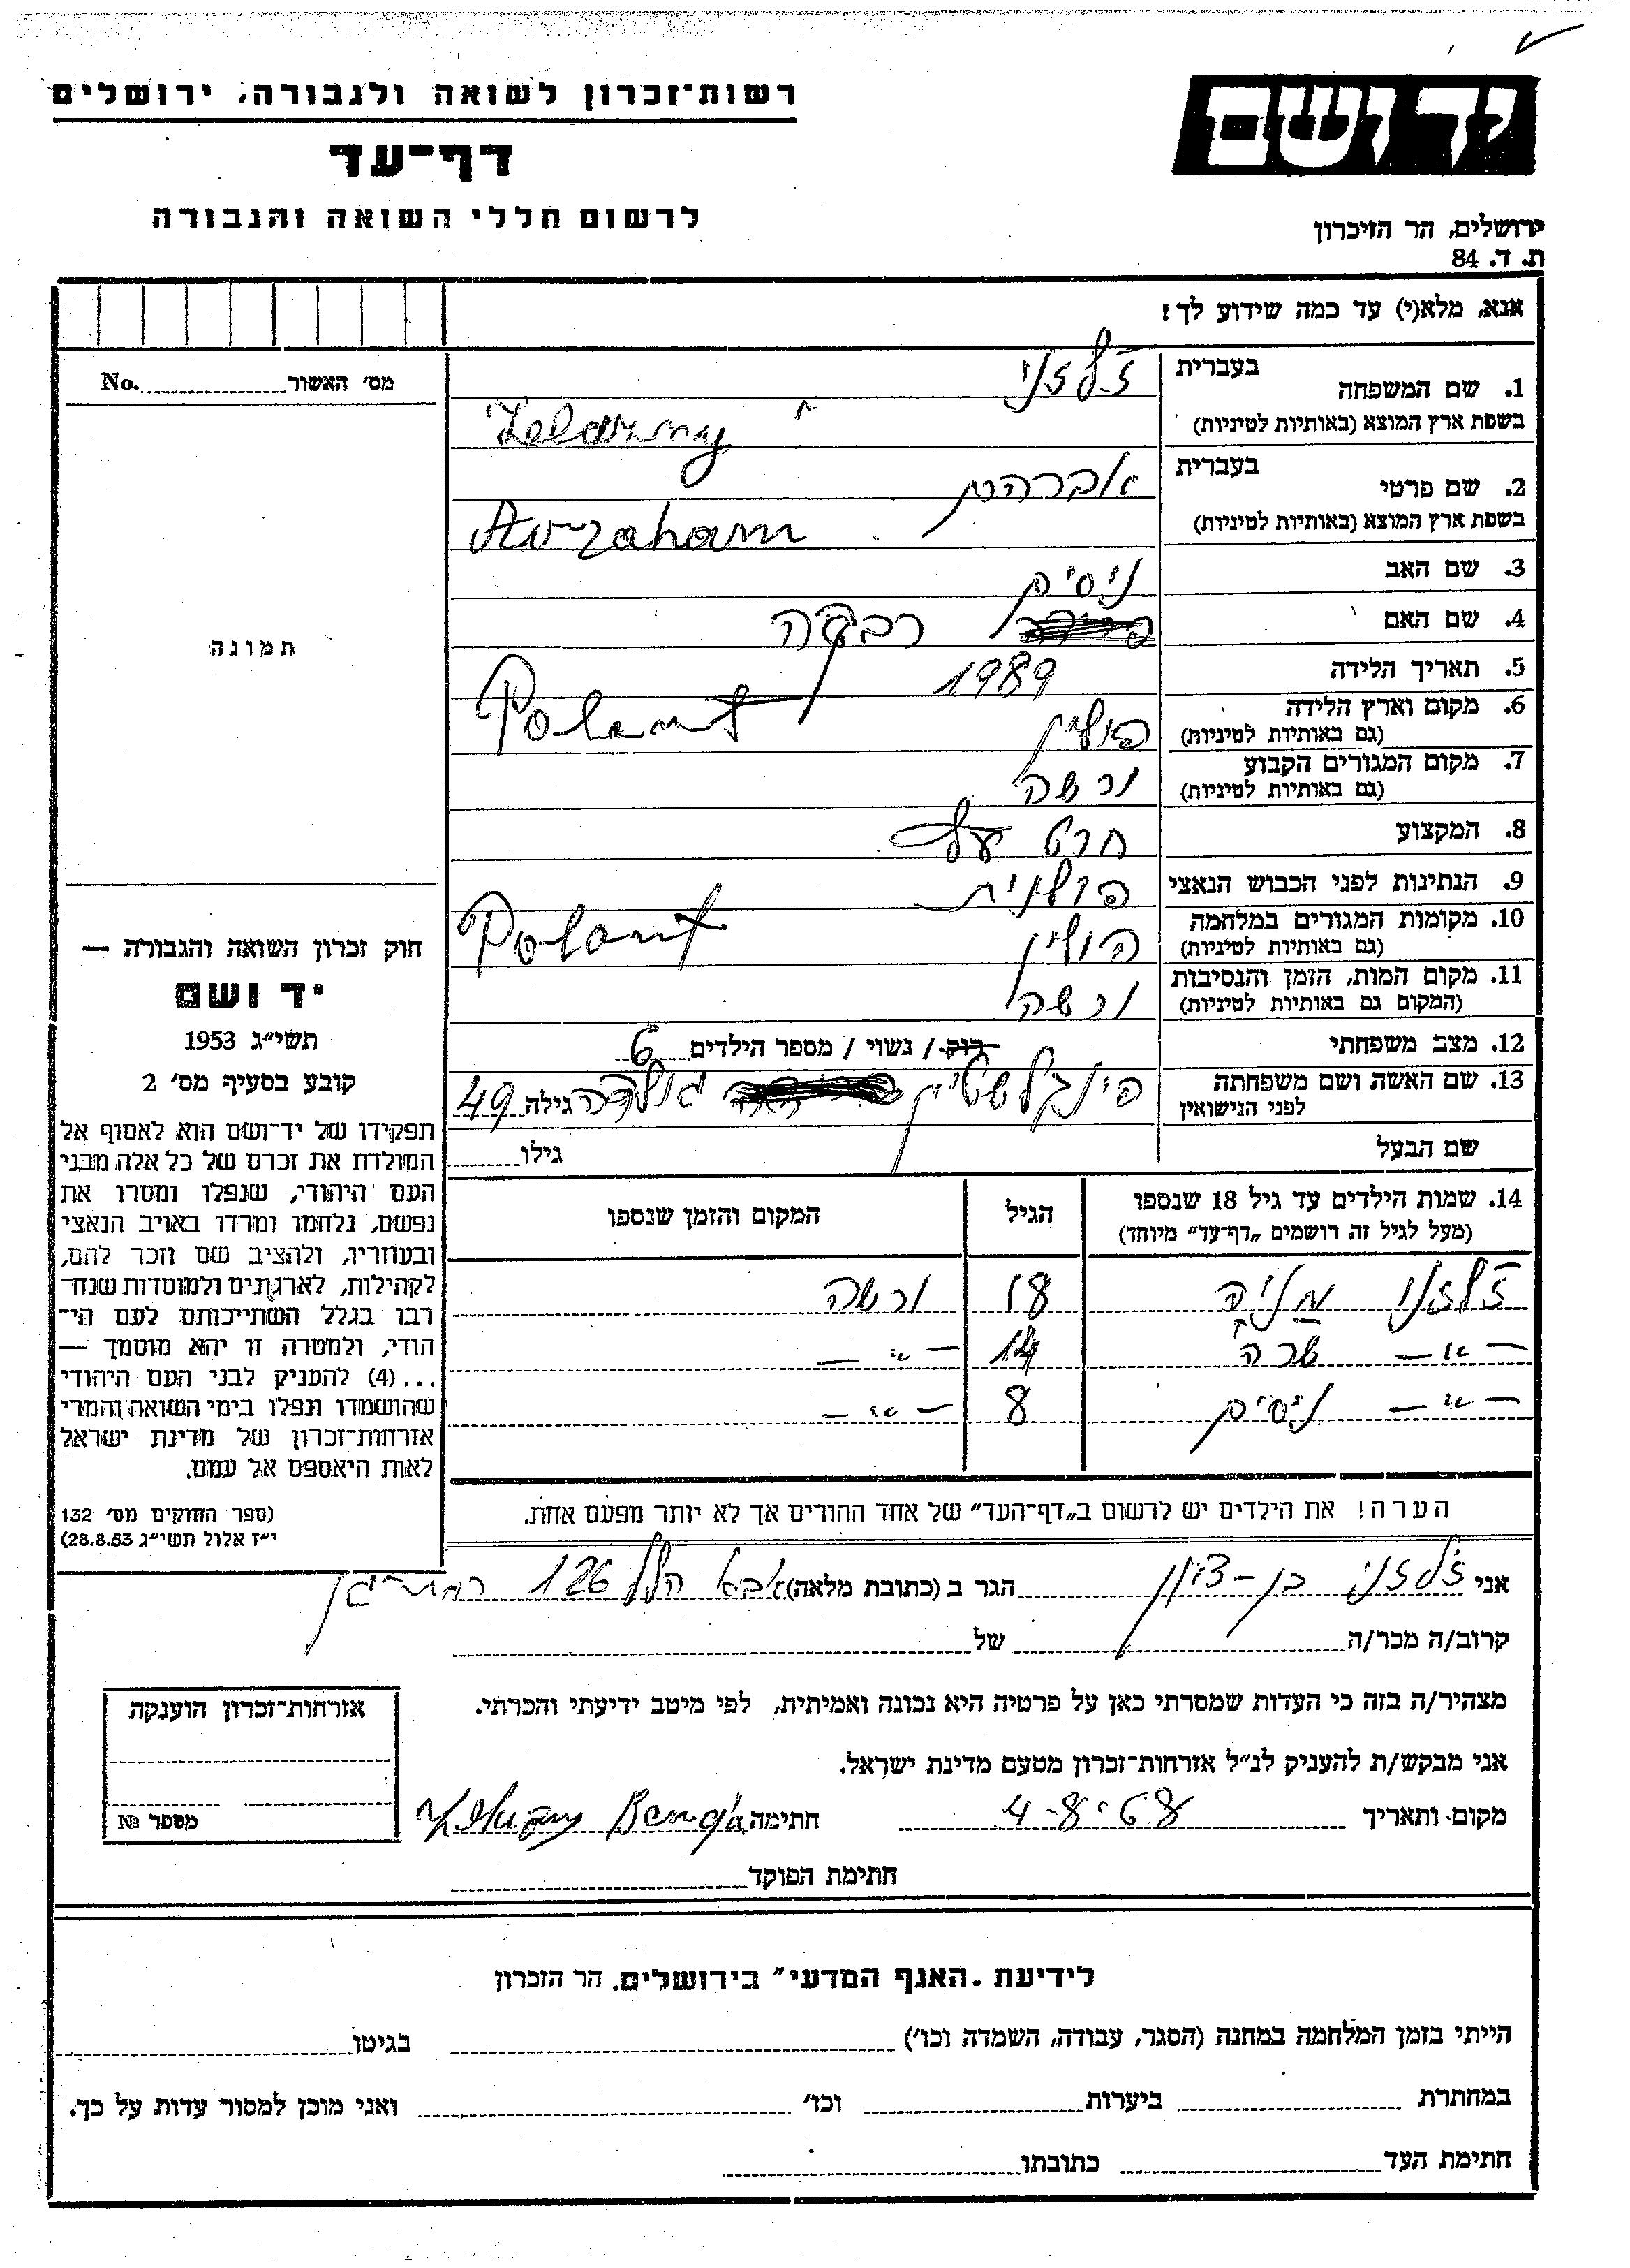 יד ושם
ירושלים, הר הזיכרון
ת. ד. 84
רשות־זכרון לשואה ולגבורה, ירושלים
דף־עד
לרשום חללי השואה והגבורה
אנא, מלא(י) עד כמה שידוע לך!
1. שם המשפחה בעברית ז'לזני
בשפת ארץ המוצא (באותיות לטיניות) Żelazny
2. שם פרטי בעברית אברהם
בשפת ארץ המוצא (באותיות לטיניות) Avraham
3. שם האב ניסים
4. שם האם רבקה
5. תאריך הלידה 1989
6. מקום וארץ הלידה (גם באותיות לטיניות) פולין Polant
7. מקום המגורים הקבוע (גם באותיות לטיניות) ורשה
8. המקצוע חרט עץ
9. הנתינות לפני הכבוש הנאצי פולנית
10. מקומות המגורים במלחמה (גם באותיות לטיניות) פולין Polant
11. מקום המות, הזמן והנסיבות (המקום גם באותיות לטיניות) ורשה
12. מצב משפחתי רוק / נשוי / מספר הילדים 6
13. שם האשה ושם משפחתה לפני הנישואין פינקלשטיין גולדה גילה 49
שם הבעל גילו
14. שמות הילדים עד גיל 18 שנספו הגיל המקום והזמן שנספו
(מעל לגיל זה רושמים „דף־עד” מיוחד)
ז'לזני מניה 18 ורשה
— " — שרה 14 — " —
— " — ניסים 8 — " —
הערה! את הילדים יש לרשום ב„דף־העד” של אחד ההורים אך לא יותר מפעם אחת.
מס׳ האשור No.
תמונה
חוק זכרון השואה והגבורה —
יד ושם
תשי״ג 1953
קובע בסעיף מס׳ 2
תפקידו של יד־ושם הוא לאסוף אל
המולדת את זכרם של כל אלה מבני
העם היהודי, שנפלו ומסרו את
נפשם, נלחמו ומרדו באויב הנאצי
ובעוזריו, ולהציב שם וזכר להם,
לקהילות, לארגונים ולמוסדות שנח־
רבו בגלל השתייכותם לעם הי־
הודי, ולמטרה זו יהא מוסמך —
...(4) להעניק לבני העם היהודי
שהושמדו ונפלו בימי השואה והמרי
אזרחות־זכרון של מדינת ישראל
לאות היאספם אל עמם.
(ספר החוקים מס׳ 132
י״ז אלול תשי״ג 28.8.53)
אני ז'לזני בן-ציון הגר ב (כתובת מלאה) אבא הלל 126 רמת-גן
קרוב/ה מכר/ה של
מצהיר/ה בזה כי העדות שמסרתי כאן על פרטיה היא נכונה ואמיתית, לפי מיטב ידיעתי והכרתי.
אני מבקש/ת להעניק לנ״ל אזרחות־זכרון מטעם מדינת ישראל.
מקום ותאריך 4-8-68 חתימה
חתימת הפוקד
אזרחות־זכרון הוענקה
מספר №
לידיעת „האגף המדעי” בירושלים, הר הזכרון
הייתי בזמן המלחמה במחנה (הסגר, עבודה, השמדה וכו׳) בגיטו
במחתרת ביערות וכו׳ ואני מוכן למסור עדות על כך.
חתימת העד כתובתו